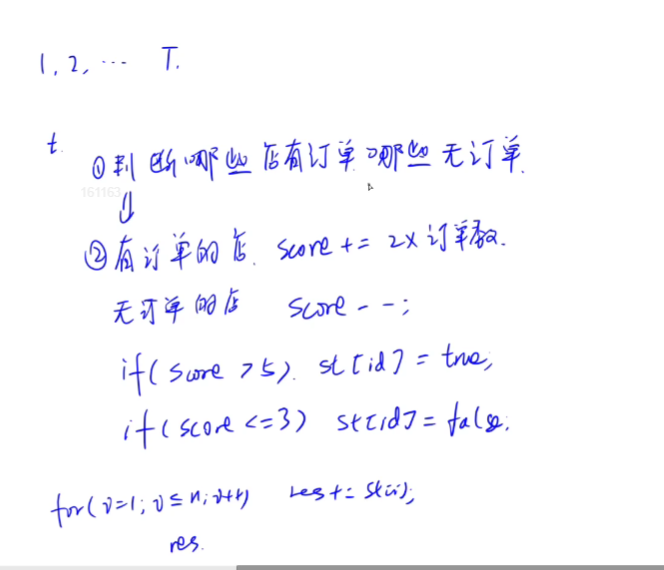 1, 2, ... T.
t.
①判断哪些店有订单,哪些无订单.
161163
②有订单的店. score += 2x订单数.
无订单的店 score--;
if(score >5). st[id] = true,
if(score <=3) st[id] = false.
for(i=1; i≤n; i++) res += st[i];
res.